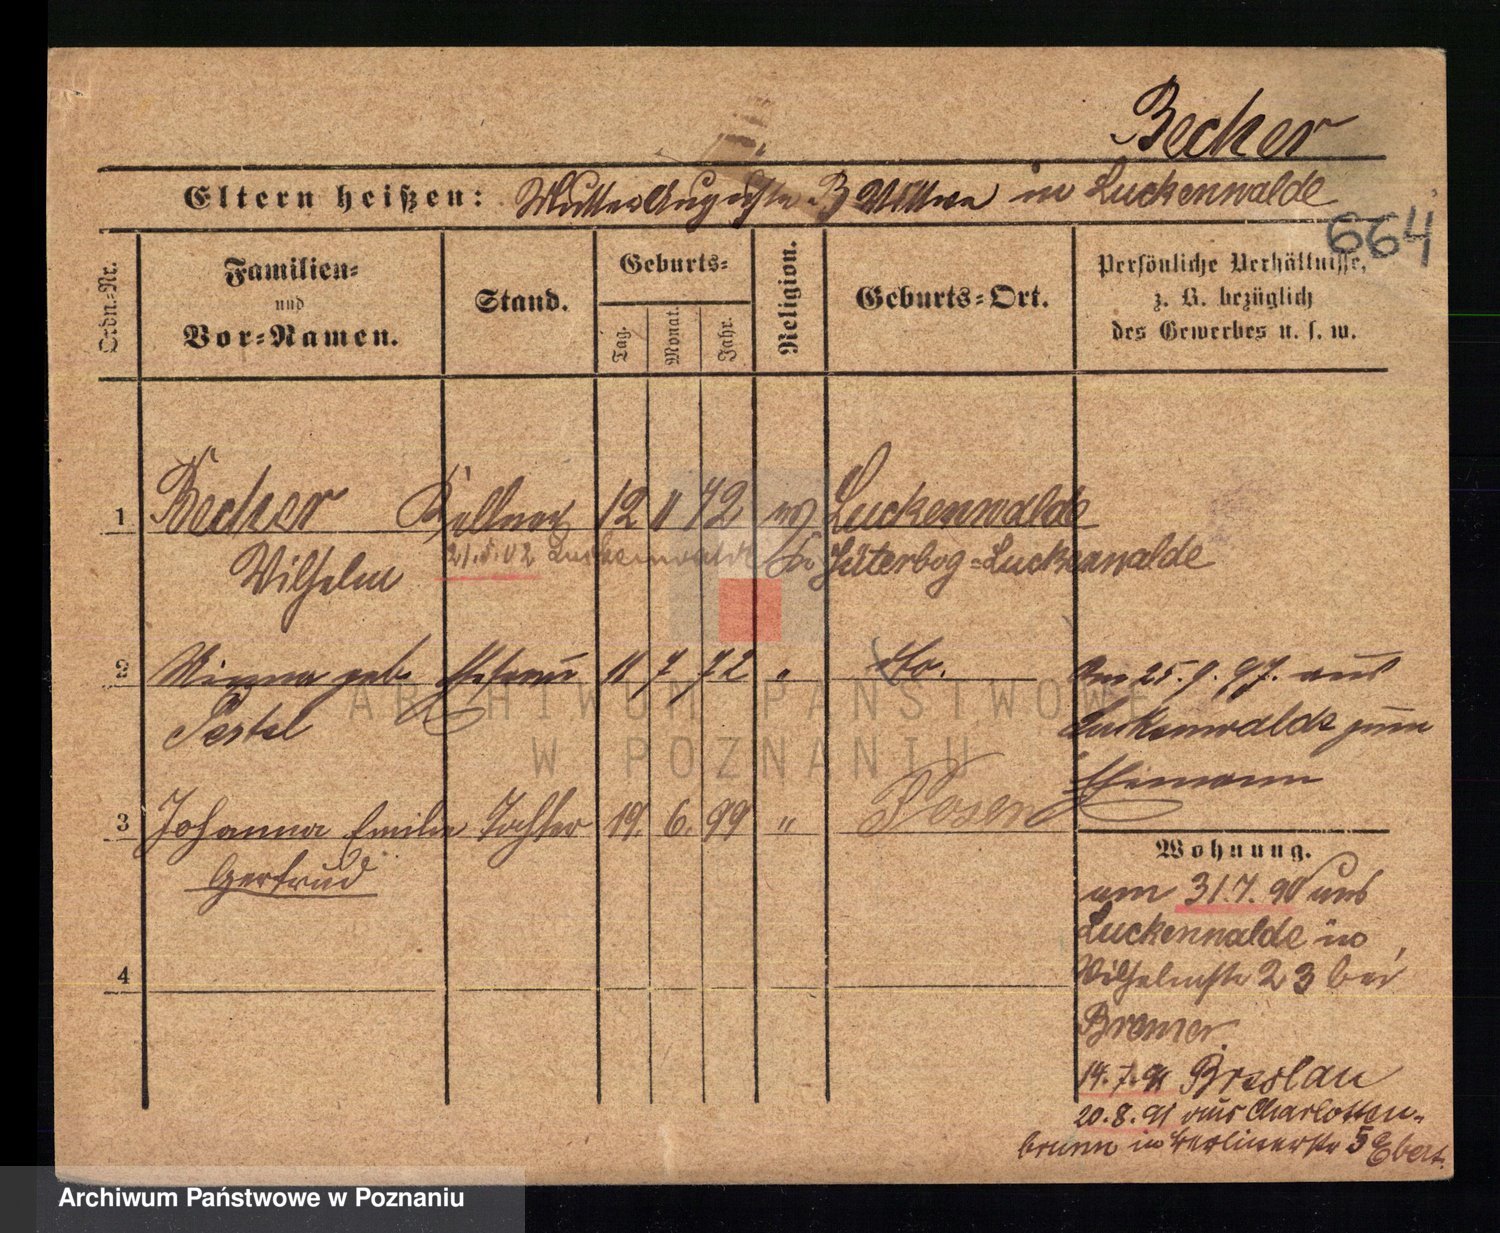 Becker
Eltern heißen: Mutter Auguste B Wittwe in Luckenwalde
664
Ordn.-Nr.
Familien-
und
Vor-Namen.
Stand.
Geburts-
Tag.
Monat.
Jahr.
Religion.
Geburts-Ort.
Persönliche Verhältnisse,
z. B. bezüglich
des Gewerbes u. s. w.
1 Becker Kellner 12 11 72 ev Luckenwalde
Wilhelm 21.5.02 Luckenwalde Jüterbog-Luckenwalde
2 Minna geb. Ehefrau 11 7 72 " do. Am 25.9.97. aus
Pestel Luckenwalde zum
Ehemann
3 Johanna Emilie Tochter 19. 6. 99 " Posen
Gertrud
Wohnung.
am 31.7.90 aus
Luckenwalde in
Wilhelmstr 23 bei
Bremer
4
14.7.91 Breslau
20.8.91 aus Charlotten-
brunn in Berlinerstr 5 Ebert.
ARCHIWUM PAŃSTWOWE
W POZNANIU
Archiwum Państwowe w Poznaniu